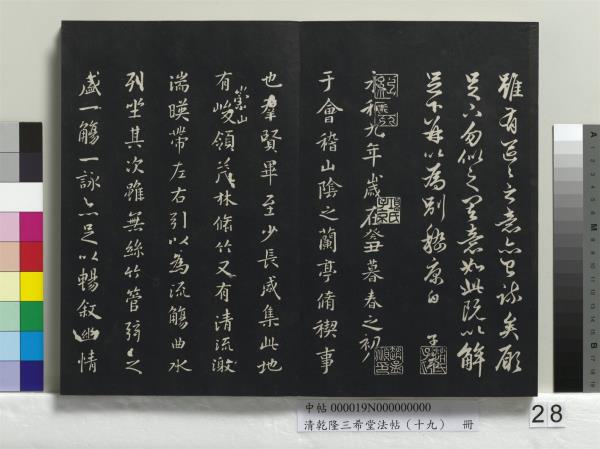 雖有區區之意亦已疏矣願
足下勿似之其意如此既以解
足下并以為別嵇康白 子昂
永和九年歲在癸丑暮春之初
于會稽山陰之蘭亭脩禊事
也羣賢畢至少長咸集此地
有崇山峻領茂林脩竹又有清流激
湍暎帶左右引以為流觴曲水
列坐其次雖無絲竹管弦之
盛一觴一詠亦足以暢敘幽情
中帖 000019N000000000
清乾隆三希堂法帖（十九） 冊
28